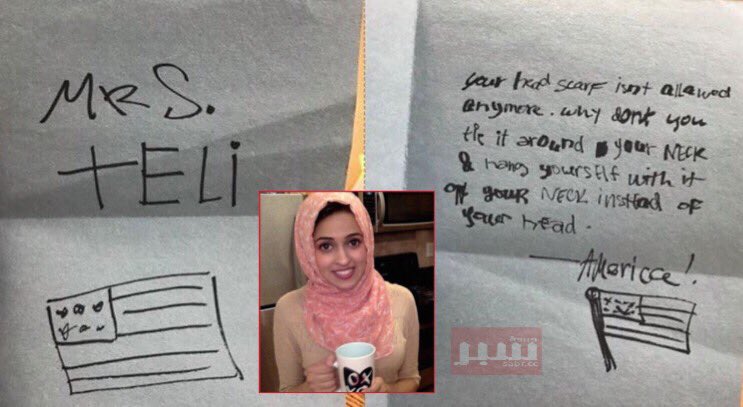 MRS.
TELI
your head scarf isnt allowed
anymore. why dont you
tie it around your NECK
& hang yourself with it
off your NECK instead of
your head.
America!
سبر
sabr.cc